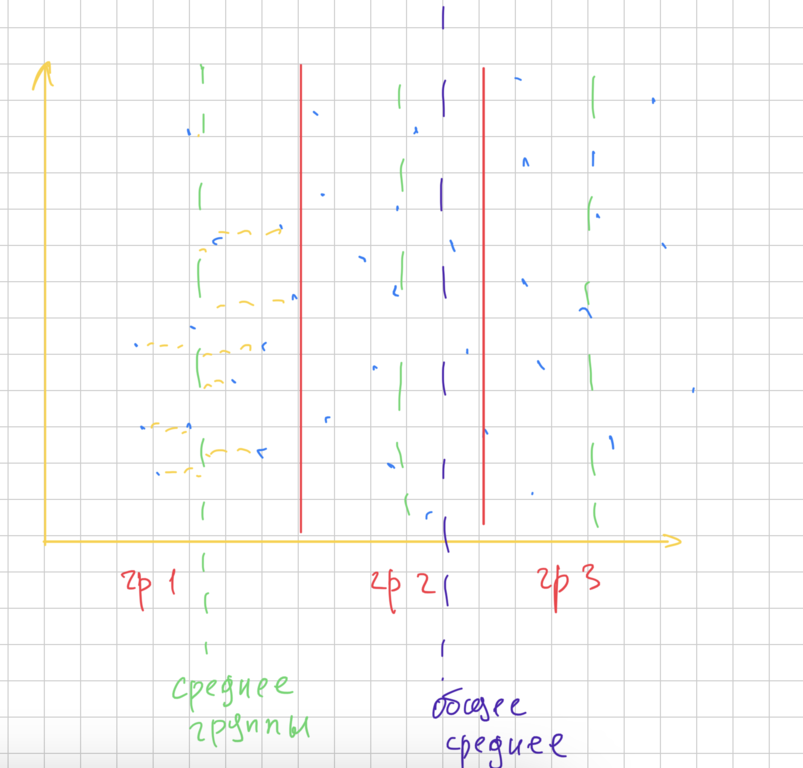 гр 1
гр 2
гр 3
среднее
группы
общее
среднее